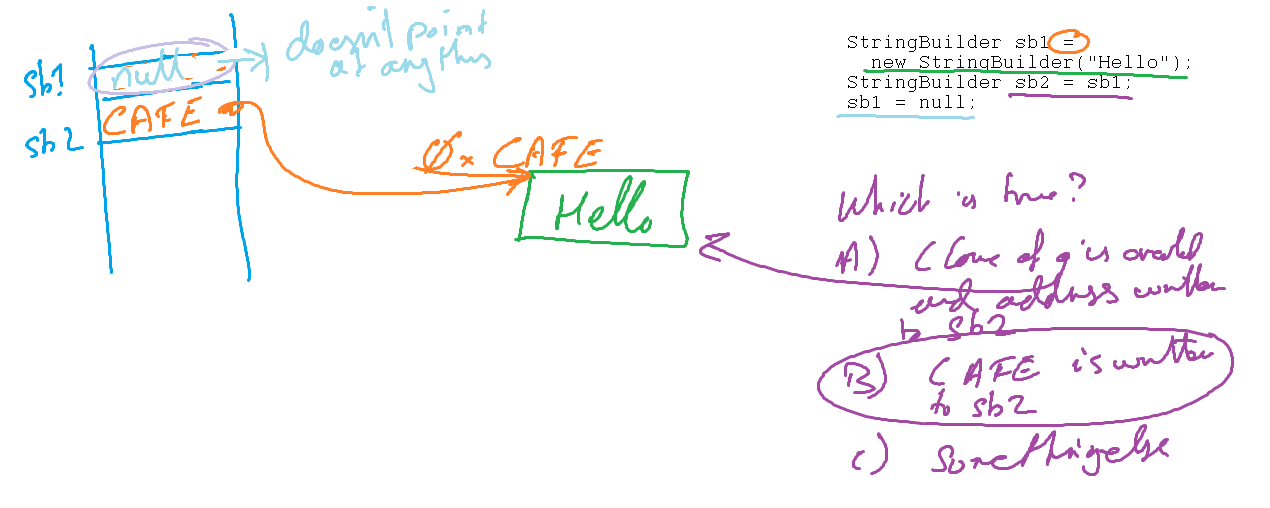 sb1
null
doesn't point
at anything
CAFE
sb2
0x CAFE
Hello
StringBuilder sb1 =
new StringBuilder("Hello");
StringBuilder sb2 = sb1;
sb1 = null;
Which is true?
A) Clone of is
and address written
to sb2
B) CAFE is written
to sb2
c) Something else